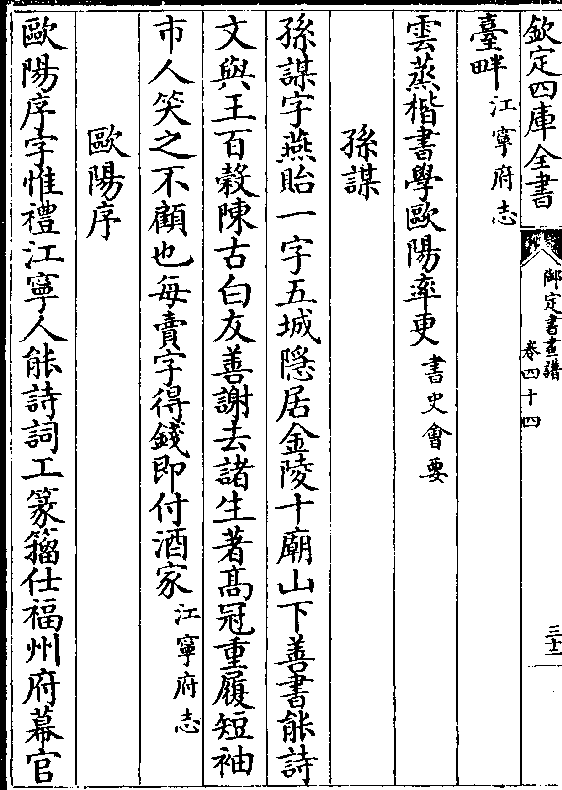 欽定四庫全書
御定書畫譜
卷四十四
三十二
臺畔江寧府志
雲蒸楷書學歐陽率更書史會要
孫謀
孫謀字燕貽一字五城隠居金陵十廟山下善書能詩
文與王百穀陳古白友善謝去諸生著髙冠重履短袖
市人笑之不顧也每賣字得錢即付酒家江寧府志
歐陽序
歐陽序字惟禮江寧人能詩詞工篆籀仕福州府幕官